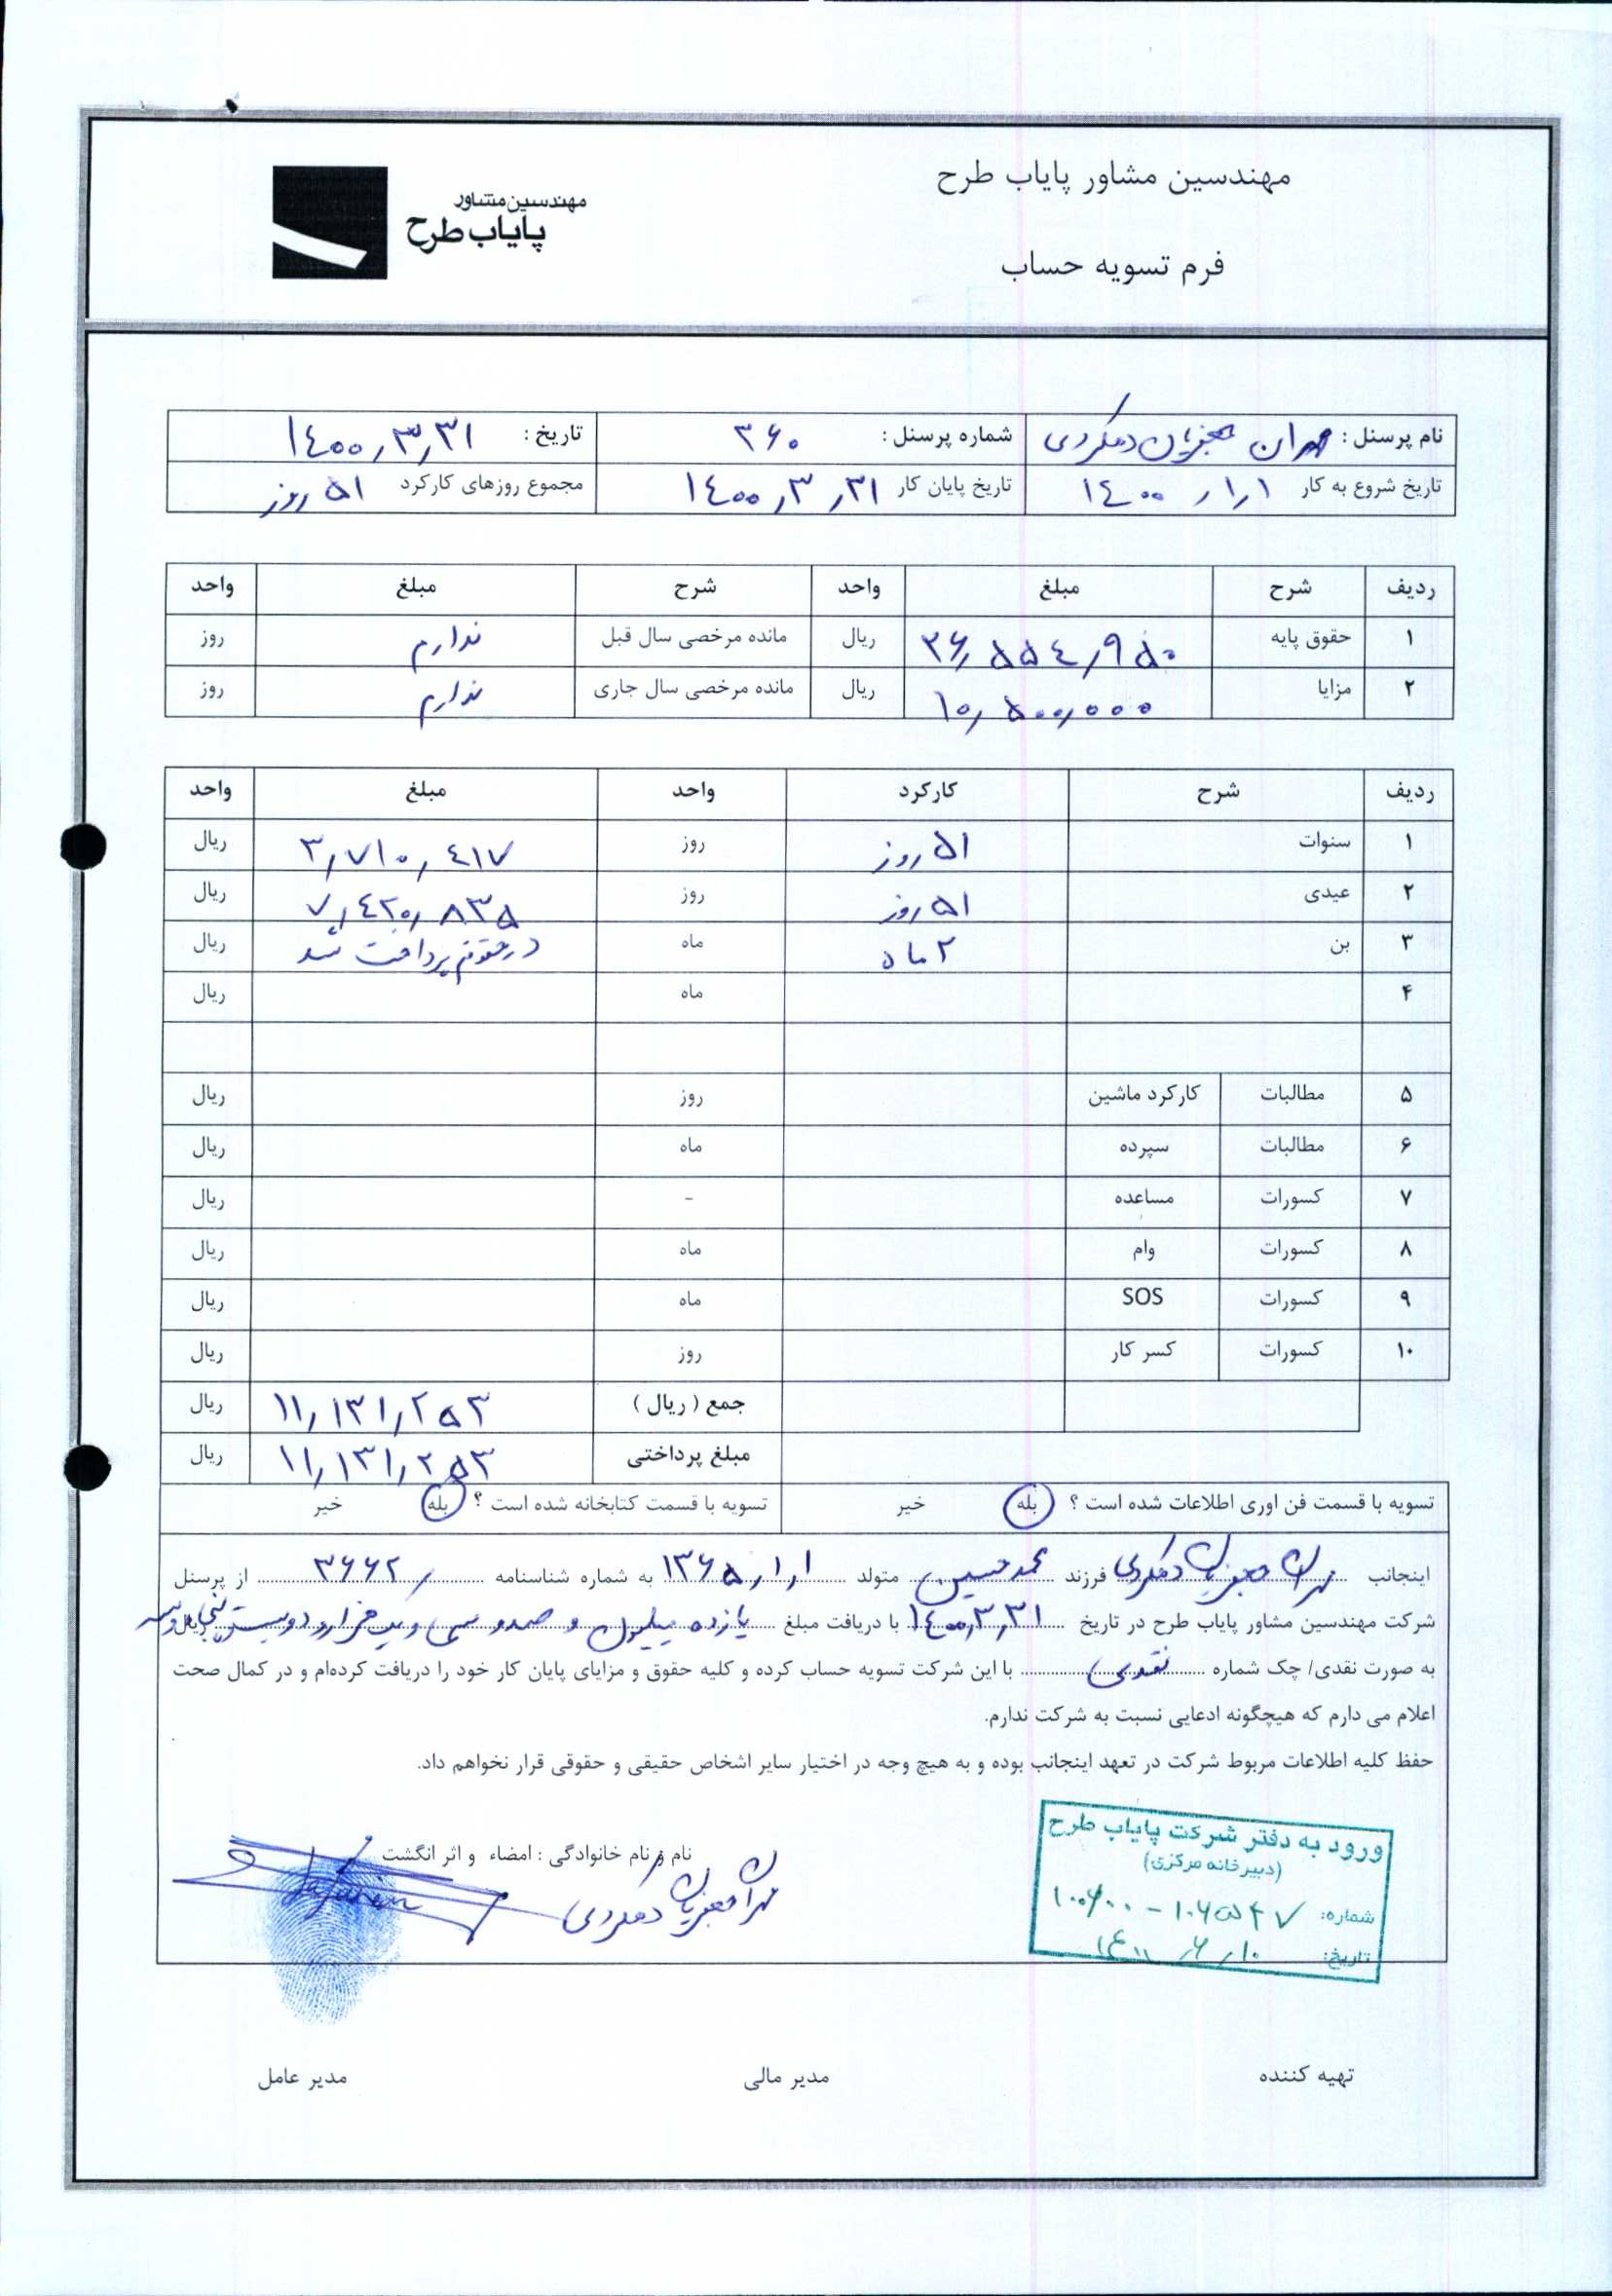 مهندسین مشاور پایاب طرح
مهندسین مشاور
پایاب طرح
فرم تسویه حساب
نام پرسنل : مهران دهکردی شماره پرسنل : ۳۶۰ تاریخ : ۱۴۰۰,۳,۳۱
تاریخ شروع به کار ۱۴۰۰,۱,۱ تاریخ پایان کار ۱۴۰۰,۳,۳۱ مجموع روزهای کارکرد ۵۱ روز
ردیف شرح مبلغ واحد شرح مبلغ واحد
۱ حقوق پایه ۳۶,۵۵۴,۹۵۰ ریال مانده مرخصی سال قبل ندارم روز
۲ مزایا ۱۰,۵۰۰,۰۰۰ ریال مانده مرخصی سال جاری ندارم روز
ردیف شرح کارکرد واحد مبلغ واحد
۱ سنوات ۵۱ روز روز ۳,۷۱۰,۴۱۷ ریال
۲ عیدی ۵۱ روز روز ۷,۴۲۰,۸۳۵ ریال
۳ بن ۲ ماه ماه در حقوقم پرداخت شد ریال
۴ ماه ریال
۵ مطالبات کارکرد ماشین روز ریال
۶ مطالبات سپرده ماه ریال
۷ کسورات مساعده - ریال
۸ کسورات وام ماه ریال
۹ کسورات SOS ماه ریال
۱۰ کسورات کسر کار روز ریال
جمع ( ریال ) ۱۱,۱۳۱,۲۵۳ ریال
مبلغ پرداختی ۱۱,۱۳۱,۲۵۳ ریال
تسویه با قسمت فن اوری اطلاعات شده است ؟ بله خیر تسویه با قسمت کتابخانه شده است ؟ بله خیر
اینجانب مهران دهکردی فرزند محمد حسین متولد ۱۳۶۵,۱,۱ به شماره شناسنامه ۳۶۶۲ از پرسنل
شرکت مهندسین مشاور پایاب طرح در تاریخ ۱۴۰۰,۳,۳۱ با دریافت مبلغ یازده میلیون و صد و سی و یک هزار و دویست و پنجاه و سه ریال
به صورت نقدی/ چک شماره نقدی با این شرکت تسویه حساب کرده و کلیه حقوق و مزایای پایان کار خود را دریافت کرده‌ام و در کمال صحت
اعلام می دارم که هیچگونه ادعایی نسبت به شرکت ندارم.
حفظ کلیه اطلاعات مربوط شرکت در تعهد اینجانب بوده و به هیچ وجه در اختیار سایر اشخاص حقیقی و حقوقی قرار نخواهم داد.
نام و نام خانوادگی : امضاء و اثر انگشت
مهران دهکردی
ورود به دفتر شرکت پایاب طرح
(دبیرخانه مرکزی)
شماره:
تاریخ:
تهیه کننده مدیر مالی مدیر عامل